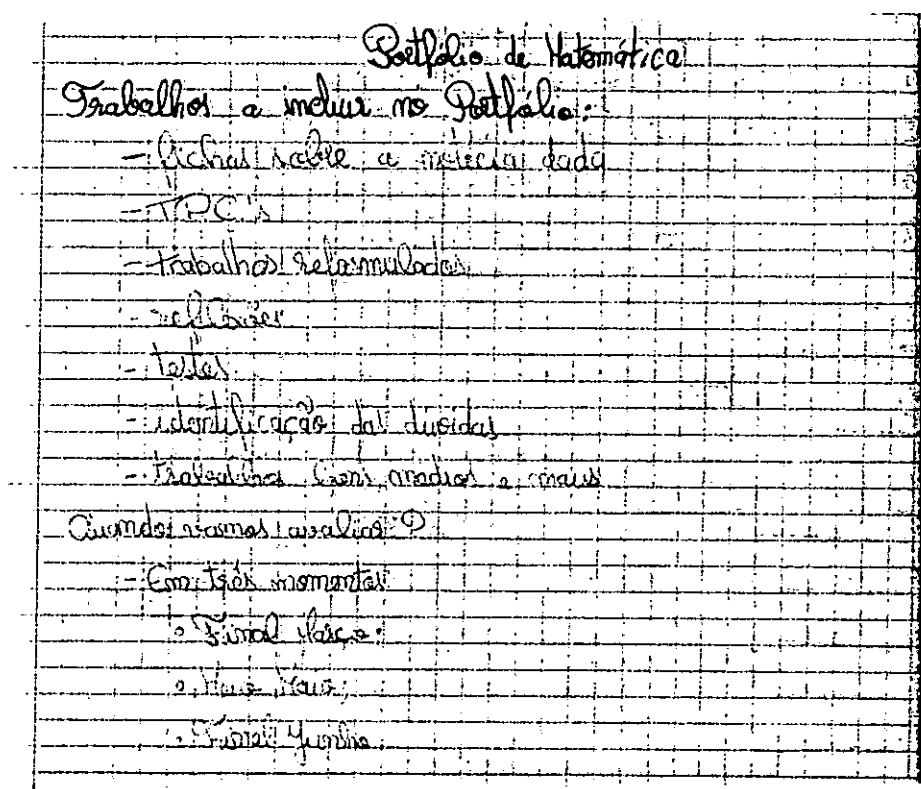 Portfólio de Matemática
Trabalhos a incluir no Portfólio:
- fichas sobre a matéria dada
- TPC's
- trabalhos reformulados
- reflexões
- testes
- identificação das duvidas
- trabalhos bons, médios e maus
Quando vamos avaliar?
- Em três momentos:
• Final Março;
• Meio Maio;
• Final Junho.